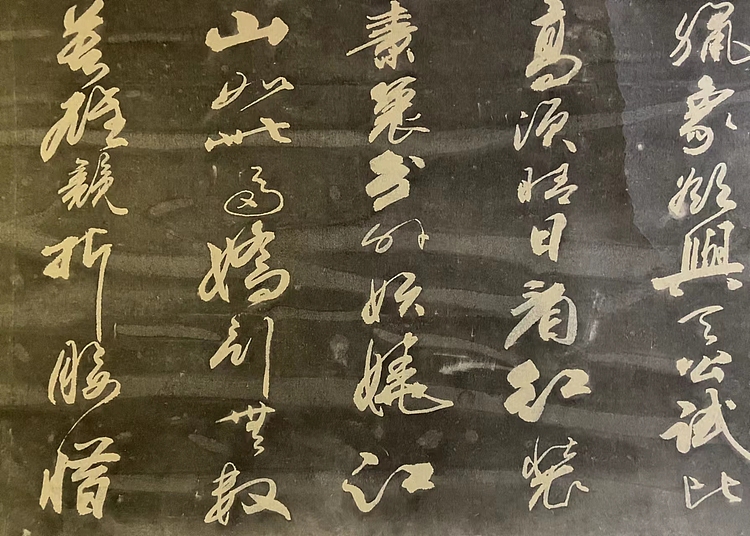 臘象欲與天公試比
高須晴日看紅裝
素裹分外妖嬈江
山如此多嬌引無數
英雄競折腰惜